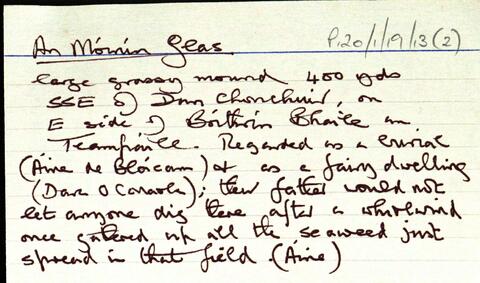 An Móinín Glas.
P120/1/19/13(2)
large grassy mound 400 yds
SSE of Dún Chonchuir, on
E side of Bóithrín Bhaile an
Teampaill. Regarded as a burial
(Áine de Blácam) & as a fairy dwelling
(Dara O Conaola); their father would not
let anyone dig there after a whirlwind
once gathered up all the seaweed just
spread in that field. (Áine)